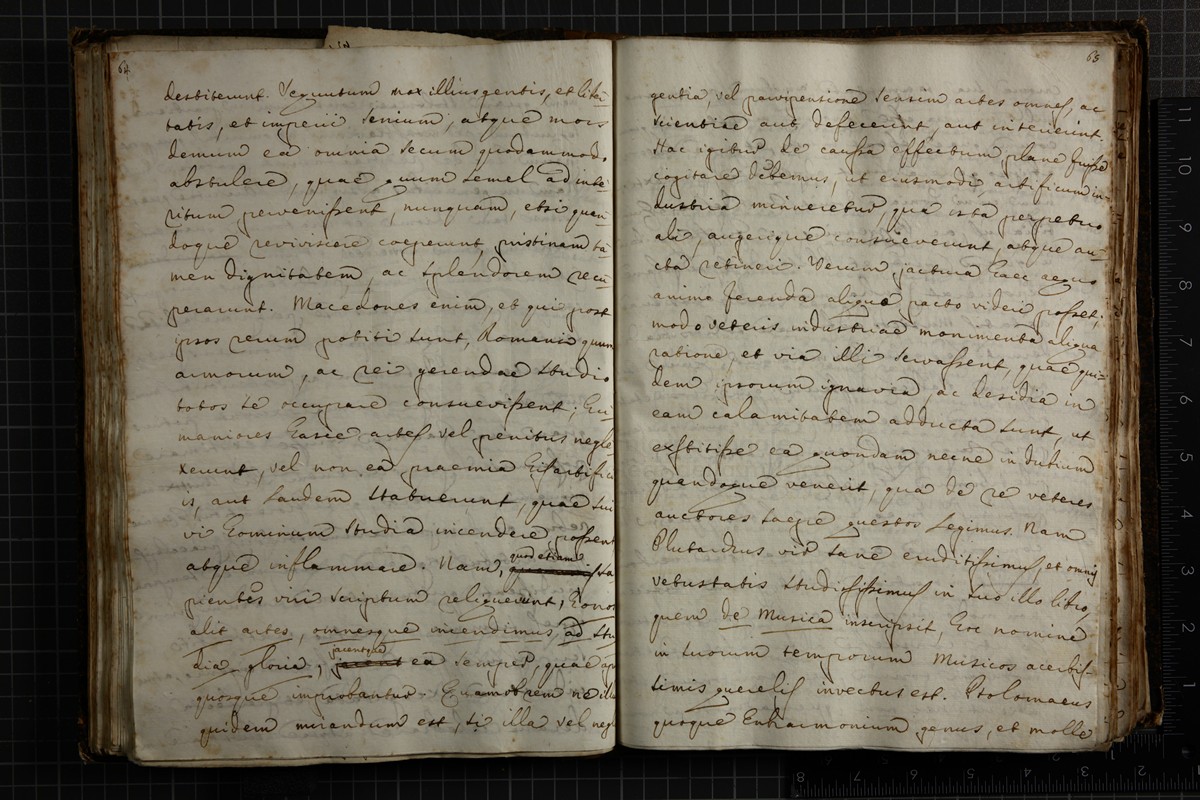 64
destiterunt. Sequutum mox illius gentis, et liber
tatis, et imperii senium, atque mors
demum ea omnia secum quodammodo
abstulere, quae quum semel ad inte
ritum pervenissent, nunquam, etsi quan
doque reviviscere coeperunt, pristinam ta
men dignitatem, ac splendorem recu
perarunt. Macedones enim, et qui post
ipsos rerum potiti sunt, Romani quum
armorum, ac rei gerendae studio
totos se occupare consuevissent; Hu
maniores hasce artes vel penitus negle
xerunt, vel non ea praemia his artifici
is, aut laudem statuerunt, quae sui
vi hominum studia incendere possent
atque inflammare. Nam, quod etiam sa
pientes viri scriptum reliquerunt, honos
alit artes, omnesque incendimur ad stu
dia gloria, jacentque ea semper, quae ap
quosque improbantur. Quamobrem ne illu
quidem mirandum est, si illa vel negli
65
gentia, vel parvipensione sensim artes omnes, ac
scientiae aut defecerint, aut interierint.
Hac igitur de caussa effectum plane fuisse
cogitare debemus, ut eiusmodi artificum in=
dustria minueretur, qua ista perpetuo
ali, augerique consueverunt, atque au=
cta retineri. Verum jactura haec aequo
animo ferenda aliquo pacto videri posset,
modo veteris industriae monimenta aliqua
ratione, et via illi servassent, quae qui=
dem ipsorum ignavia, ac desidia in
eam calamitatem adducta sunt, ut
exstitisse ea quondam necne in dubium
quandoque venerit, qua de re veteres
auctores saepe questos legimus. Nam
Plutarchus vir sane eruditissimus, et omnis
vetustatis studiosissimus in suo illo libro,
quem de Musica inscripsit, hoc nomine
in suorum temporum Musicos acerbis=
simis querelis invectus est. Ptolomaeus
quoque Enharmonium genus, et molle